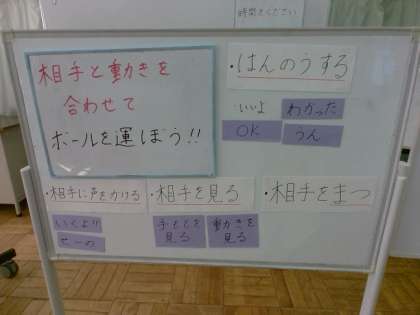 時間をください
相手と動きを
合わせて
ボールを運ぼう!!
・はんのうする
いいよ
わかった
OK
うん
・相手に声をかける
・相手を見る
・相手をまつ
いくより
せーの
手もとを
見る
動きを
見る